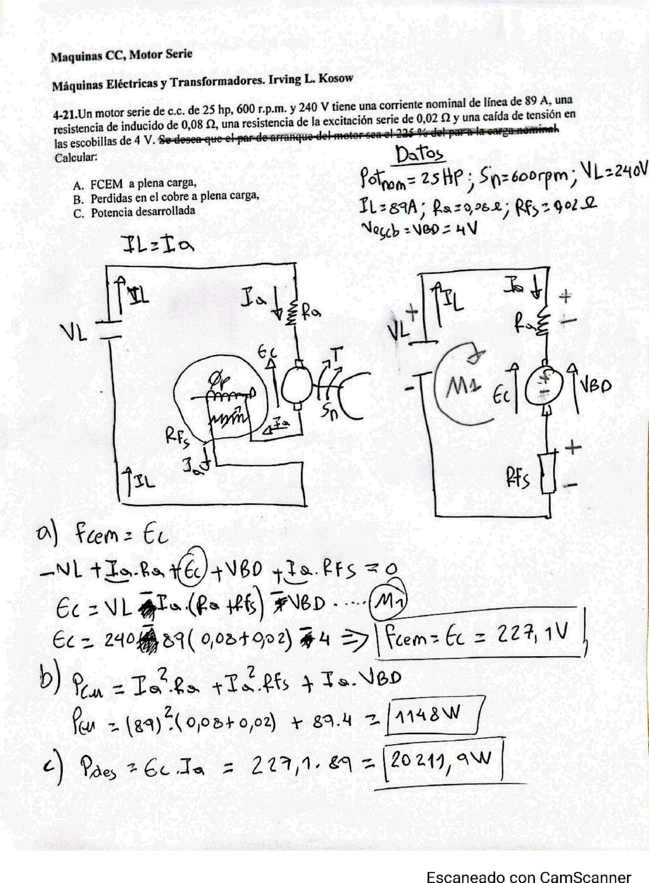 Maquinas CC, Motor Serie
Máquinas Eléctricas y Transformadores. Irving L. Kosow
4-21.Un motor serie de c.c. de 25 hp, 600 r.p.m. y 240 V tiene una corriente nominal de línea de 89 A, una
resistencia de inducido de 0,08 Ω, una resistencia de la excitación serie de 0,02 Ω y una caída de tensión en
las escobillas de 4 V. Se desea que el par de arranque del motor sea el 225 % del par a la carga nominal.
Calcular:
A. FCEM a plena carga,
B. Perdidas en el cobre a plena carga,
C. Potencia desarrollada
Datos
Potnom = 25HP ; Sn=600rpm ; VL=240V
IL=89A ; Ra=0,08Ω ; Rfs=0,02 Ω
Vescb = VBD = 4V
IL=Ia
IL
VL
Ia
Ra
Ec
T
Sn
Ia
RFs
Ia
IL
VL
+
-
IL
Ia
Ra
+
-
M1
Ec
VBD
RFs
+
-
a) Fcem = Ec
-VL + Ia.Ra + Ec + VBD + Ia.RFS = 0
Ec = VL - Ia.(Ra+Rfs) - VBD ..... M1
Ec = 240 - 89(0,08+0,02) - 4 => Fcem = Ec = 227,1V
b) Pcu = Ia².Ra + Ia².Rfs + Ia.VBD
Pcu = (89)².(0,08+0,02) + 89.4 = 1148W
c) Pdes = Ec.Ia = 227,1.89 = 20211,9W
Escaneado con CamScanner